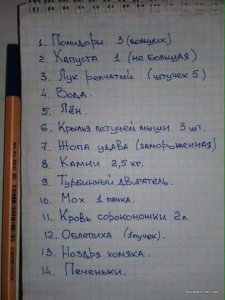 1. Помидоры 3 (больших)
2. Капуста 1 (не большая)
3. Лук репчатый (штучек 5)
4. Вода.
5. Лён.
6. Крылья летучей мыши 3 шт.
7. Жопа удава (замороженная)
8. Камни 2,5 кг.
9. Турбинный двигатель.
10. Мох 1 пачка.
11. Кровь сороконожки 2л.
12. Облепиха (1 пучок).
13. Ноздря хомяка.
14. Печеньки.